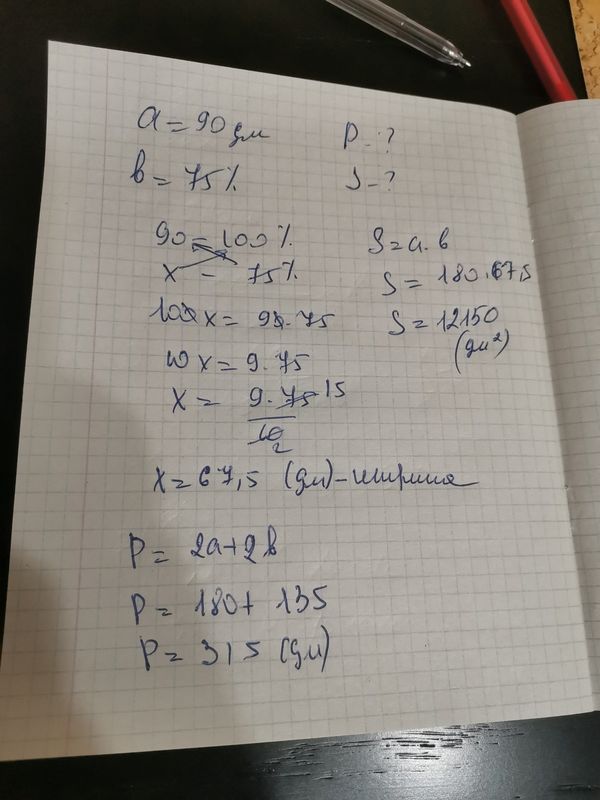 a = 90 дм
в = 75%
P - ?
S - ?
90 = 100%
x - 75%
100x = 90.75
10x = 9.75
x = 9.75 15
10 2
x = 67,5 (дм) - ширина
S = a.в
S = 180.67,5
S = 12150
(дм²)
P = 2a+2в
P = 180 + 135
P = 315 (дм)